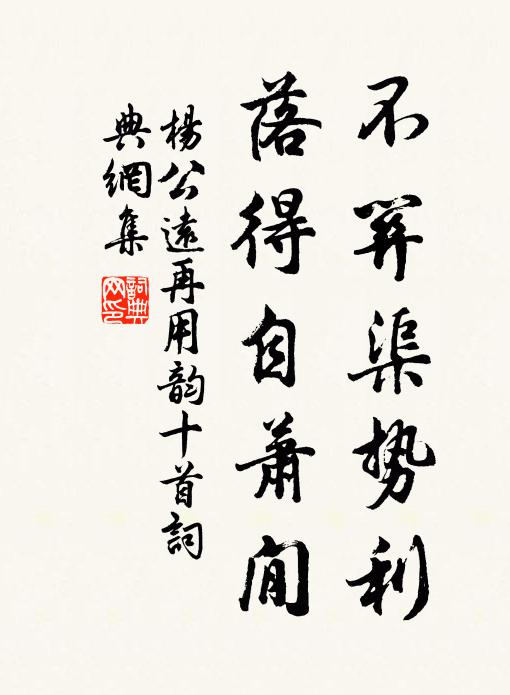 不渠势利
落得自蕭閒
楊公遠再用韵十首詞
典網集
詞典
网印